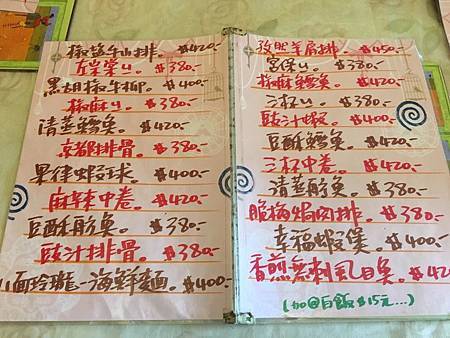 椒鹽牛山排。$420.-
左棠榮ㄐ。$380.-
黑胡椒牛柳。$400.-
椒麻ㄐ。$380.-
清蒸鱈魚。$420.-
京都排骨。$380.-
果律蝦球。$400.-
麻辣中卷。$420.-
豆酥魚。$380.-
豉汁排骨。$380.-
八面玲瓏-海鮮麵。$400.-
孜然羊肩排。$450.-
宮保ㄐ。$380.-
椒麻鱈魚。$420.-
三杯ㄐ。$380.-
豉汁。$400.-
豆酥鱈魚。$420.-
三杯中卷。$420.-
清蒸魚。$380.-
脆梅焢肉排。$380.-
幸福蝦煲。$400.-
香煎無刺虱目魚。$42
(加@白飯$15元...)